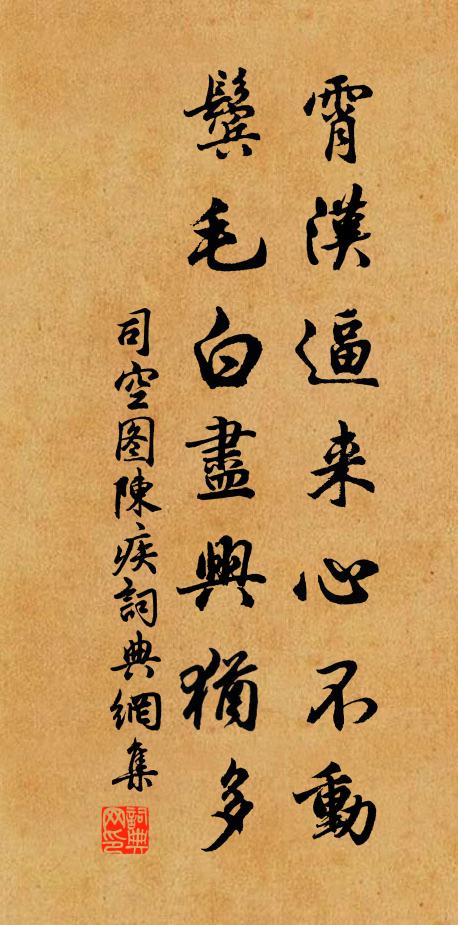 霄漢逼来心不動
鬓毛白盡興猶多
司空图陳疾詞典網集
詞典网印